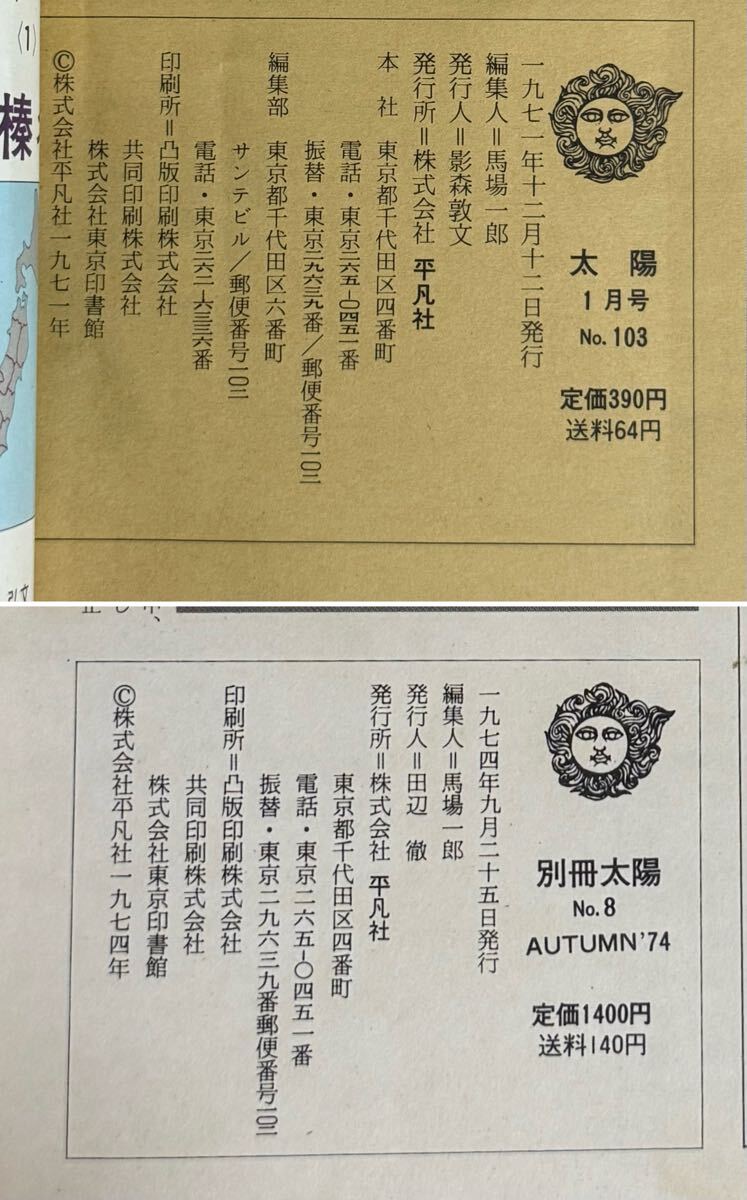 太陽
1月号
No. 103
定価390円
送料64円
一九七一年十二月十二日発行
編集人＝馬場一郎
発行人＝影森敦文
発行所＝株式会社 平凡社
本社 東京都千代田区四番町
電話・東京二六五-〇四五一番
振替・東京二九六三九番／郵便番号一〇二
編集部 東京都千代田区六番町
サンテビル／郵便番号一〇二
電話・東京二六二-六三三六番
印刷所＝凸版印刷株式会社
共同印刷株式会社
株式会社東京印書館
©株式会社平凡社一九七一年
(1)
榛
別冊太陽
No. 8
AUTUMN'74
定価1400円
送料140円
一九七四年九月二十五日発行
編集人＝馬場一郎
発行人＝田辺 徹
発行所＝株式会社 平凡社
東京都千代田区四番町
電話・東京二六五-〇四五一番
振替・東京二九六三九番郵便番号一〇二
印刷所＝凸版印刷株式会社
共同印刷株式会社
株式会社東京印書館
©株式会社平凡社一九七四年